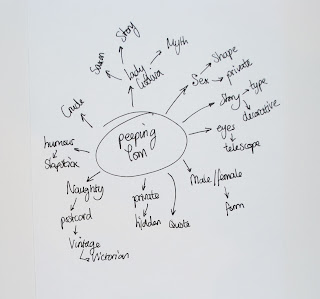 Story
Myth
Saxon
lady
Godiva
Shape
Sex
private
Crude
Story
type
decorative
peeping
Tom
eyes
telescope
humour
Slapstick
Naughty
private
Male/female
postcard
hidden
Quote
form
Vintage
Victorian